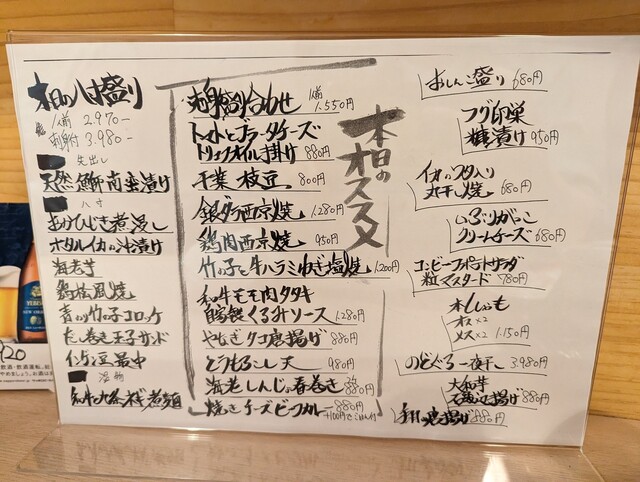 本日の八寸盛り
一人前 2.970-
刺身付 3.980-
先出し
天然鰤南蛮漬け
八寸
あかひじき煮浸し
ホタルイカの沖漬け
海老芋
鶏松風焼
青のり竹の子コロッケ
だし巻き玉子サンド
インゲン豆最中
温物
本日のオススメ
刺身盛り合わせ 一人前 1.550円
トマトとブラータチーズ
トリュフオイル掛け 880円
千葉 枝豆 800円
銀ダラ西京焼 1.280円
鶏肉西京焼 950円
竹の子と牛ハラミねぎ塩焼 1.200円
和牛モモ肉タタキ
自家製くるみソース 1.280円
やなぎタコ唐揚げ 880円
とうもろこし天 980円
海老しんじょ春巻き 880円
焼きチーズビーフカレー 880円
+100円でごはん付
おしんこ盛り 680円
フグ卵巣
糠漬け 950円
イカのスミ入り
丸干し焼 680円
いぶりがっこ
クリームチーズ 680円
コンビーフポテトサラダ
粒マスタード 780円
本ししゃも
オス×2
メス×2 1.150円
のどぐろ一夜干 3.980円
大和芋
磯辺揚げ 880円
唐揚げ 880円